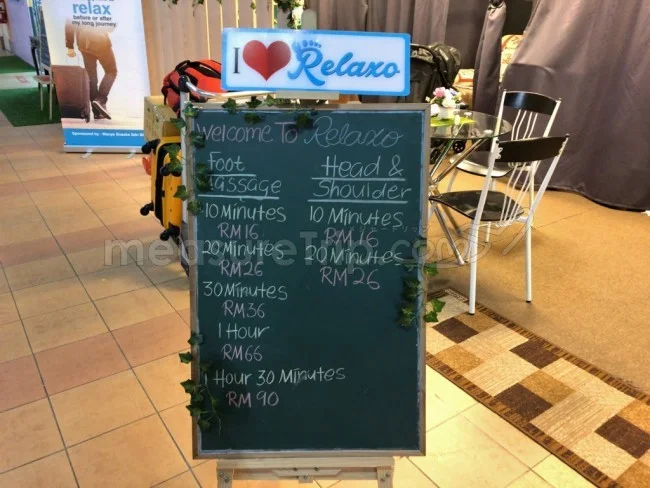 relax
before or after
my long journey
I ❤ Relaxo
Welcome To Relaxo
Foot
Massage
10 Minutes
RM16
20 Minutes
RM26
30 Minutes
RM36
1 Hour
RM66
1 Hour 30 Minutes
RM 90
Head &
Shoulder
10 Minutes
RM16
20 Minutes
RM26
measureTrip.com